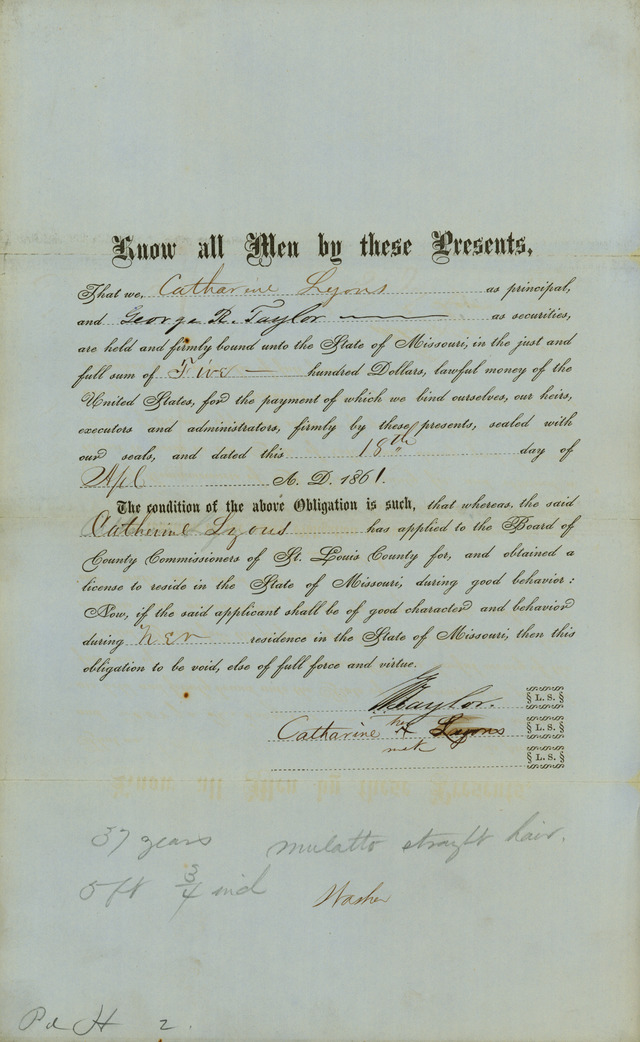 Know all Men by these Presents,
That we, Catharine Lyons as principal,
and George R. Taylor as securities,
are held and firmly bound unto the State of Missouri, in the just and
full sum of Five hundred Dollars, lawful money of the
United States, for the payment of which we bind ourselves, our heirs,
executors and administrators, firmly by these presents, sealed with
our seals, and dated this 18th day of
Apl A. D. 1861.
The condition of the above Obligation is such, that whereas, the said
Catherine Lyons has applied to the Board of
County Commissioners of St. Louis County for, and obtained a
license to reside in the State of Missouri, during good behavior:
Now, if the said applicant shall be of good character and behavior
during her residence in the State of Missouri, then this
obligation to be void, else of full force and virtue.
Taylor. L. S.
Catharine her x Lyons L. S.
L. S.
37 years mulatto straight hair.
5 ft 3/4 inch
Washer
Pd H 2.